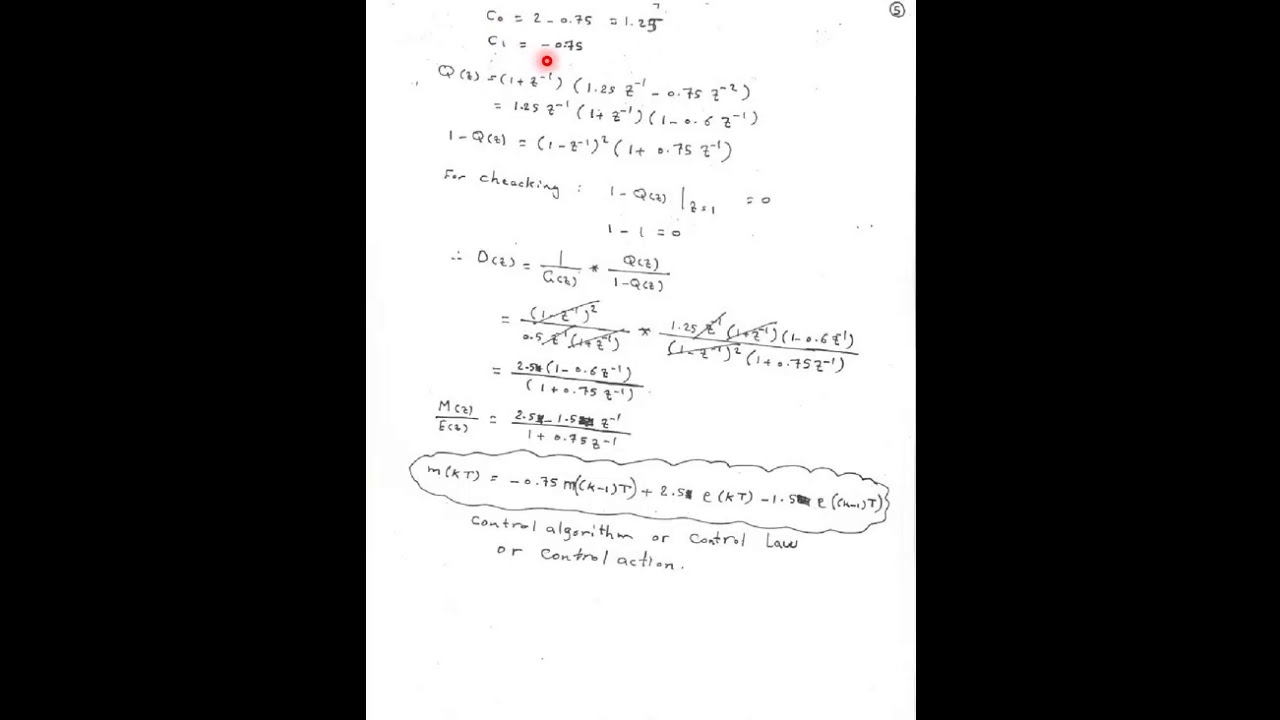 5
C₀ = 2 - 0.75 = 1.25
C₁ = -0.75
Q(z) = (1+z⁻¹) (1.25 z⁻¹ - 0.75 z⁻²)
= 1.25 z⁻¹ (1+z⁻¹)(1-0.6 z⁻¹)
1-Q(z) = (1-z⁻¹)² (1+ 0.75 z⁻¹)
For cheacking : 1-Q(z) |z=1 = 0
1-1 = 0
∴ D(z) = 1/G(z) * Q(z)/1-Q(z)
= (1-z⁻¹)²/0.5 z⁻¹(1+z⁻¹) * 1.25 z⁻¹(1+z⁻¹)(1-0.6 z⁻¹)/(1-z⁻¹)²(1+0.75z⁻¹)
= 2.5(1-0.6z⁻¹)/(1+0.75 z⁻¹)
M(z)/E(z) = 2.5-1.5 z⁻¹/1+0.75z⁻¹
m(kT) = -0.75 m((k-1)T) + 2.5 e(kT) -1.5 e((k-1)T)
Control algorithm or Control Law
or Control action.